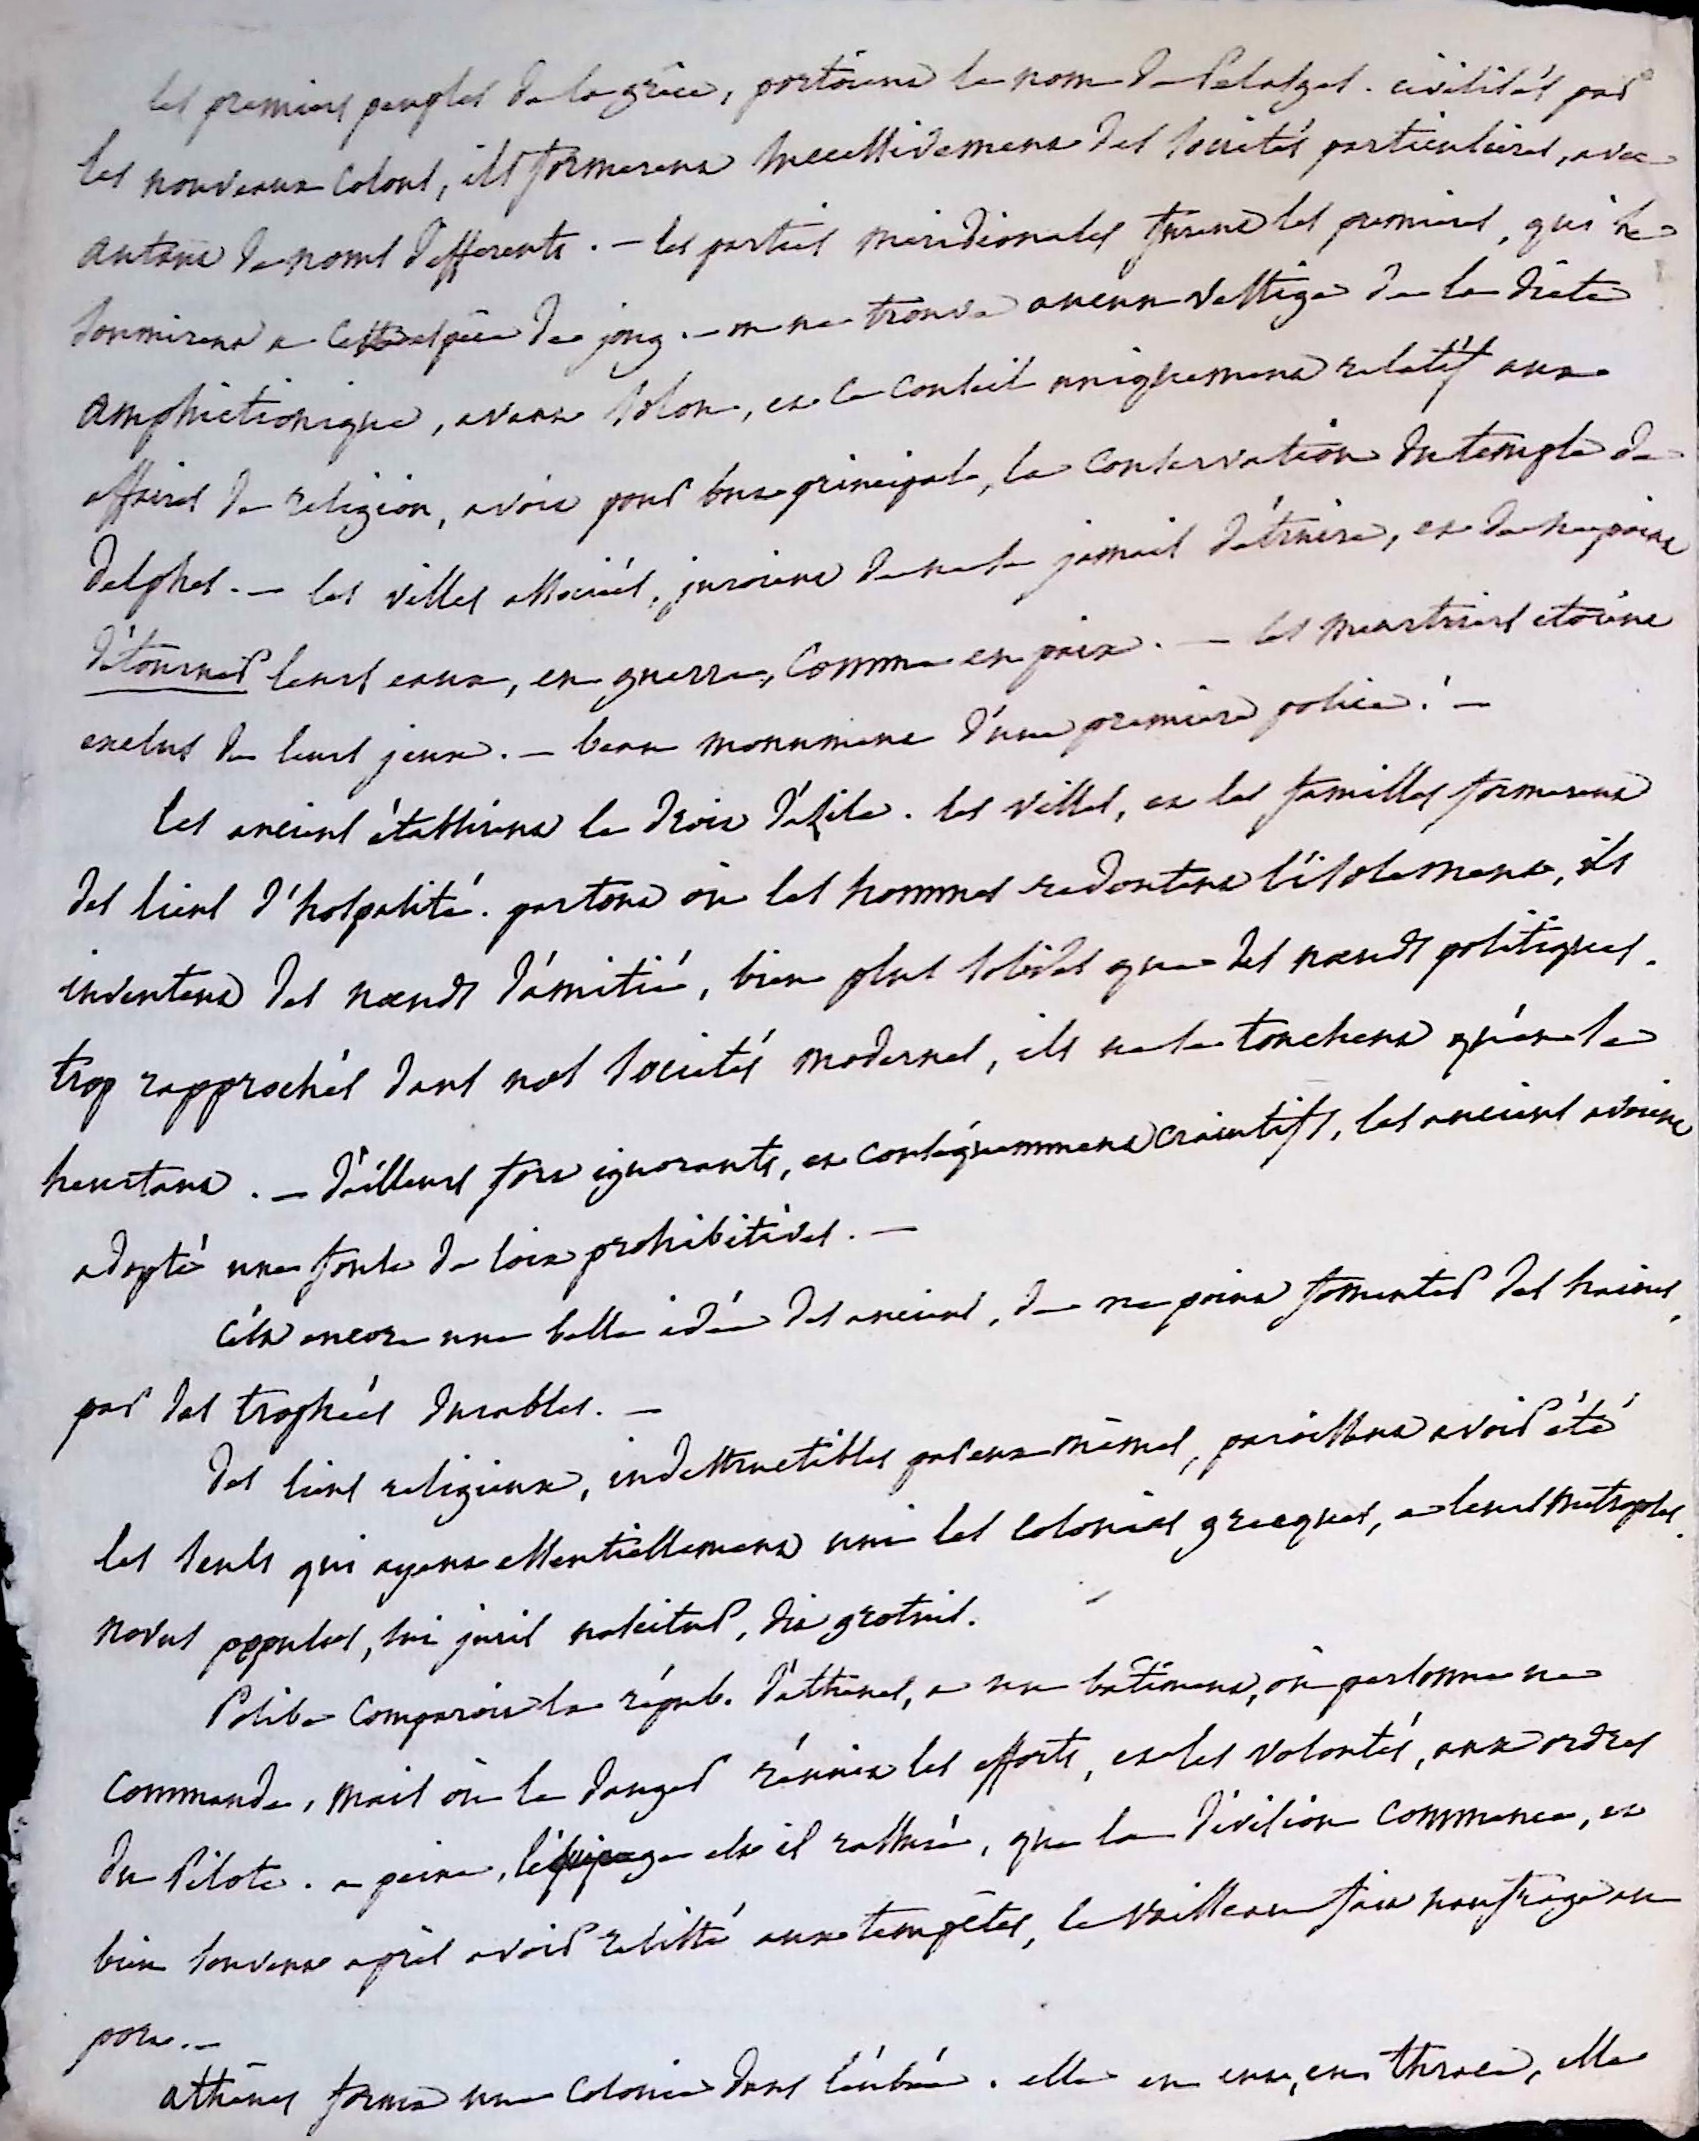 les premiers peuples de la grèce, portoient le nom de Pelasges. civilisés par
les nouveaux colons, ils formerent successivement des sociétés particulieres, avec
autant de noms différents. – les parties méridionales furent les premieres, qui se
soumirent a cette espèce de joug. – on ne trouve aucun vestige de la diète
amphictionique, avant Solon, et ce conseil uniquement relatif aux
affaires de religion, avoit pour but principal, la conservation du temple de
delphes. – les villes associées, juroient de ne se jamais détruire, et de ne point
détourner leurs eaux, en guerre, comme en paix. – les meurtriers etoient
exclus de leurs jeux. – beau monument d'une premiere police. –
les anciens établirent le droit d'asile. les villes, et les familles formerent
des liens d'hospalité. partout où les hommes redoutent l'isolement, ils
inventent des nœuds d'amitié, bien plus solides que des nœuds politiques.
trop rapprochés dans nos sociétés modernes, ils ne se touchent qu'en se
heurtant. – d'ailleurs fort ignorants, et conséquemment craintifs, les anciens avoient
adopté une foule de loix prohibitives. –
c'est encore une belle idée des anciens, de ne point fomenter des haines,
par des trophées durables. –
des liens religieux, indestructibles par eux mêmes, paroissent avoir été
les seuls qui ayent essentiellement uni les colonies grecques, a leurs métropoles.
novus populus, sui juris nascitur, dit grotius.
Polibe comparoit la répub. d'athènes, a un bâtiment, où personne ne
commande, mais où le danger réunit les efforts, et les volontés, aux ordres
du Pilote. a peine, l'équipage est il rassuré, que la division commence, et
bien souvent après avoir résisté aux tempêtes, le vaisseau fait naufrage au
port. –
athènes forma une colonie dans l'eubée. elle en eut, en thrace, elle